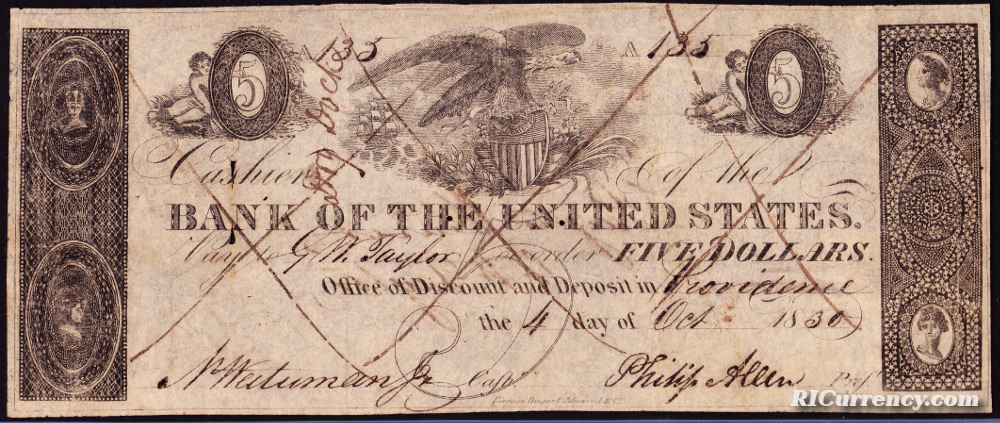 5 A 135 A 135 5
Cashier of the
BANK OF THE UNITED STATES.
Pay to G W. Taylor or order FIVE DOLLARS.
Office of Discount and Deposit in Providence
the 4 day of Oct 1830
Waterman Jr Cashr Philip Allen Prest
RICurrency.com